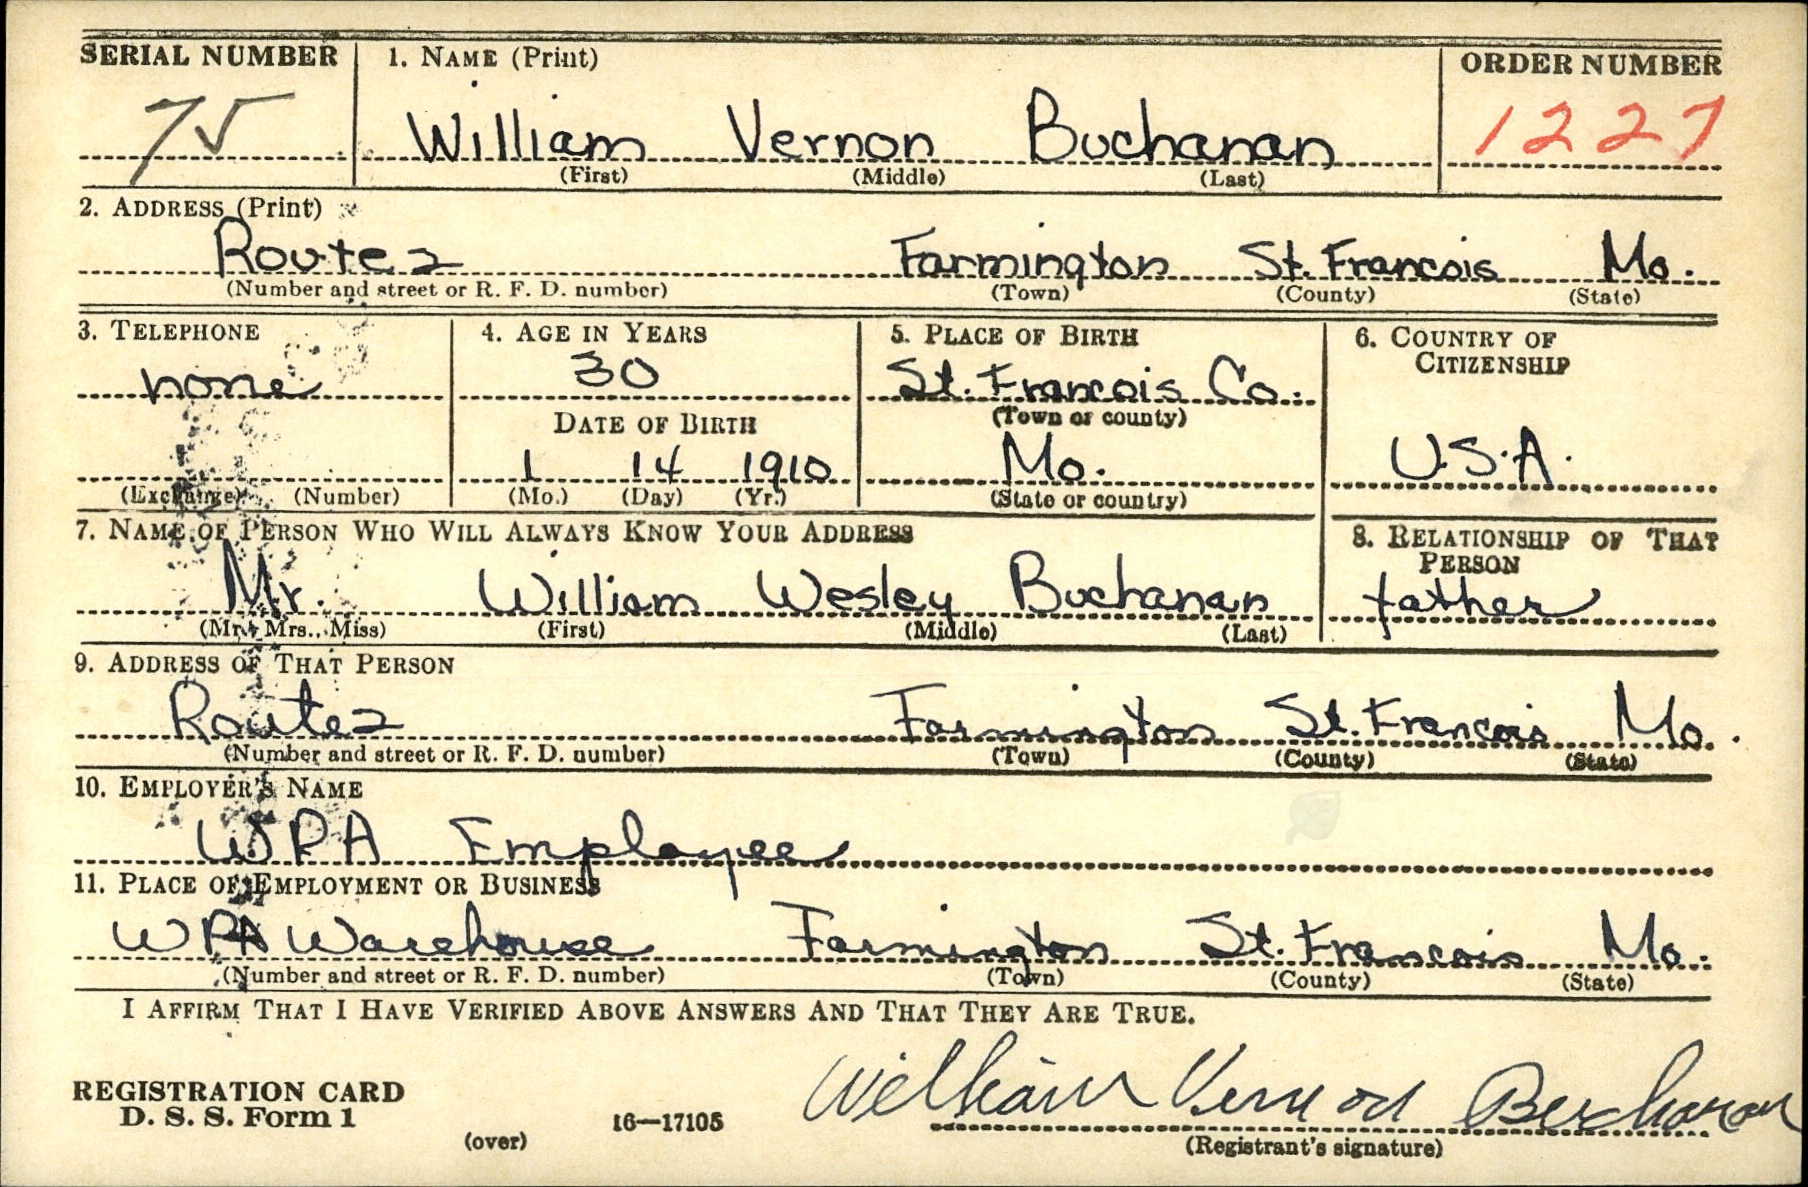 SERIAL NUMBER 1. NAME (Print) ORDER NUMBER
75 William Vernon Buchanan 1227
(First) (Middle) (Last)
2. ADDRESS (Print)
Route 2 Farmington St. Francois Mo.
(Number and street or R. F. D. number) (Town) (County) (State)
3. TELEPHONE 4. AGE IN YEARS 5. PLACE OF BIRTH 6. COUNTRY OF
CITIZENSHIP
none 30 St. Francois Co.
DATE OF BIRTH (Town or county)
1 14 1910 Mo. U.S.A.
(Exchange) (Number) (Mo.) (Day) (Yr.) (State or country)
7. NAME OF PERSON WHO WILL ALWAYS KNOW YOUR ADDRESS 8. RELATIONSHIP OF THAT
PERSON
Mr. William Wesley Buchanan father
(Mr., Mrs., Miss) (First) (Middle) (Last)
9. ADDRESS OF THAT PERSON
Route 2 Farmington St. Francois Mo.
(Number and street or R. F. D. number) (Town) (County) (State)
10. EMPLOYER'S NAME
WPA Employee
11. PLACE OF EMPLOYMENT OR BUSINESS
WPA Warehouse Farmington St. Francois Mo.
(Number and street or R. F. D. number) (Town) (County) (State)
I AFFIRM THAT I HAVE VERIFIED ABOVE ANSWERS AND THAT THEY ARE TRUE.
REGISTRATION CARD
D. S. S. Form 1 16—17105 William Vernon Buchanan
(over) (Registrant's signature)